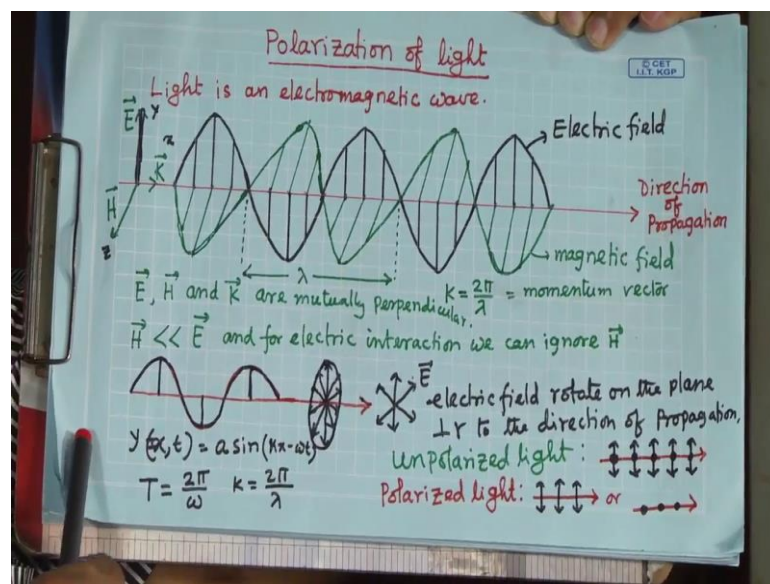 Polarization of light
© CET
I.I.T. KGP
Light is an electromagnetic wave.
E⃗ y
x
K⃗
H⃗
z
Electric field
Direction
of
Propagation
magnetic field
λ
E⃗, H⃗ and K⃗ are mutually perpendicular.
K = 2π/λ = momentum vector
H⃗ << E⃗ and for electric interaction we can ignore H⃗
E⃗
electric field rotate on the plane
⊥r to the direction of Propagation.
y(x,t) = a sin(kx-ωt)
Unpolarized light :
T = 2π/ω K = 2π/λ
Polarized light: or